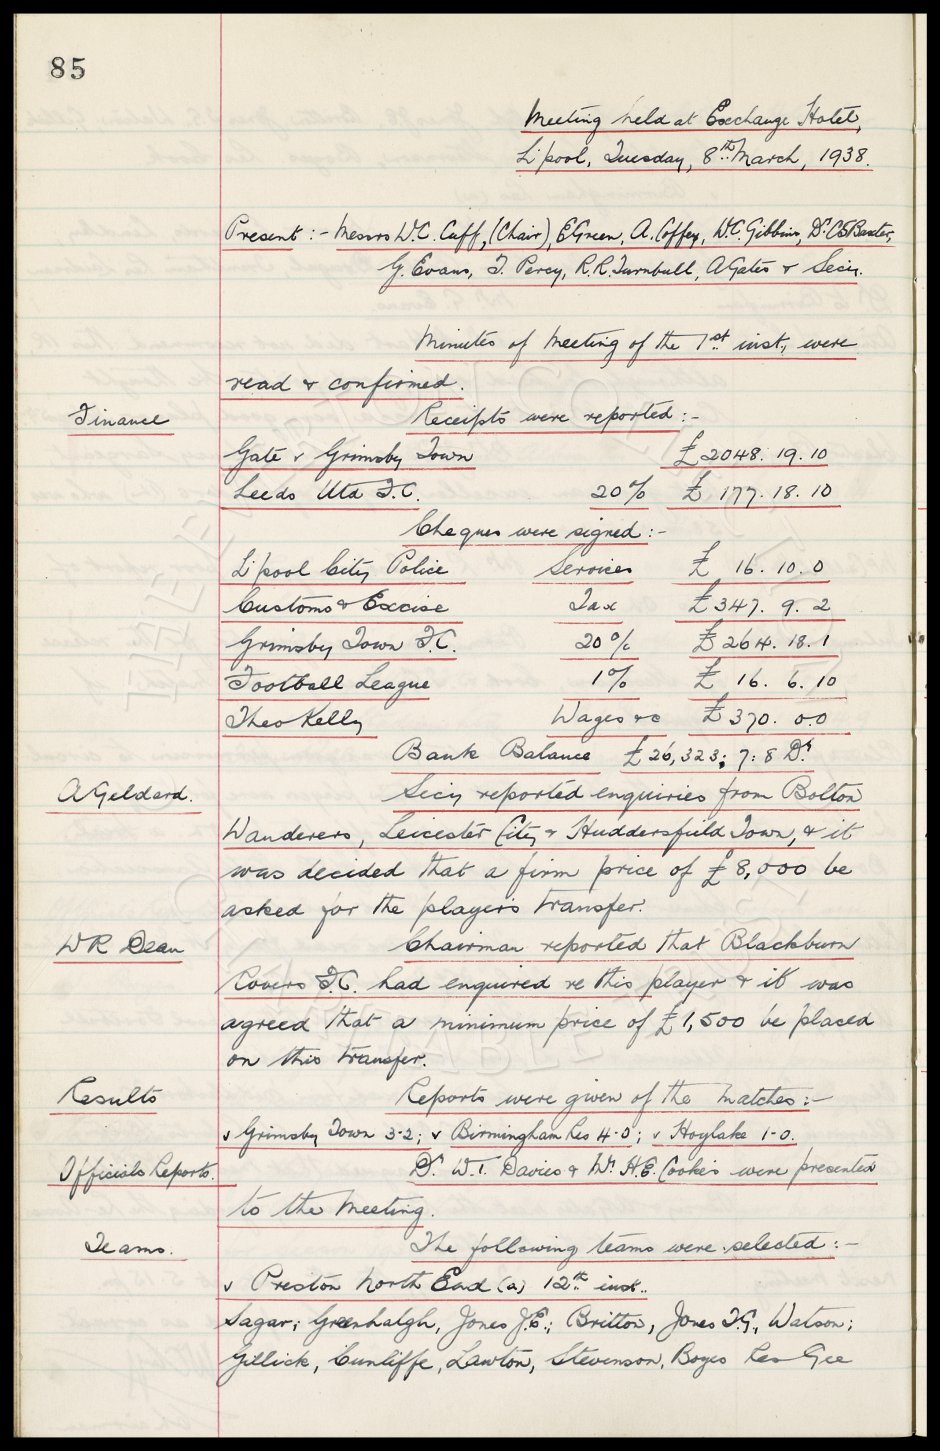 85
Meeting held at Exchange Hotel,
L'pool, Tuesday, 8th March, 1938.
Present :- Messrs W.C. Cuff, (Chair), E Green, A. Coffey, W.C. Gibbins, Dr. C S Baxter,
G. Evans, T. Percy, R.R. Turnbull, A Gates & Secy.
Minutes of Meeting of the 1st inst., were
read & confirmed.
Finance Receipts were reported :-
Gate v Grimsby Town £2048. 19. 10
Leeds Utd F.C. 20% £ 177. 18. 10
Cheques were signed :-
L'pool City Police Services £ 16. 10. 0
Customs & Excise Tax £347. 9. 2
Grimsby Town F.C. 20% £264. 18. 1
Football League 1% £ 16. 6. 10
Theo Kelly Wages &c £370. 0.0
Bank Balance £26,323; 7: 8 Dr.
A Geldard. Secy reported enquiries from Bolton
Wanderers, Leicester City & Huddersfield Town, & it
was decided that a firm price of £8,000 be
asked for the player's transfer.
W R Dean Chairman reported that Blackburn
Rovers F.C. had enquired re this player & it was
agreed that a minimum price of £1,500 be placed
on this transfer.
Results Reports were given of the matches :-
v Grimsby Town 3-2; v Birmingham Res 4-0; v Hoylake 1-0.
Officials Reports. Dr. W.I. Davies & Mr. H.E. Cooke's were presented
to the Meeting.
Teams. The following teams were selected :-
v Preston North End (a) 12th inst..
Sagar; Greenhalgh, Jones J.E.; Britton, Jones T.G., Watson;
Gillick, Cunliffe, Lawton, Stevenson, Boyes Res Gee